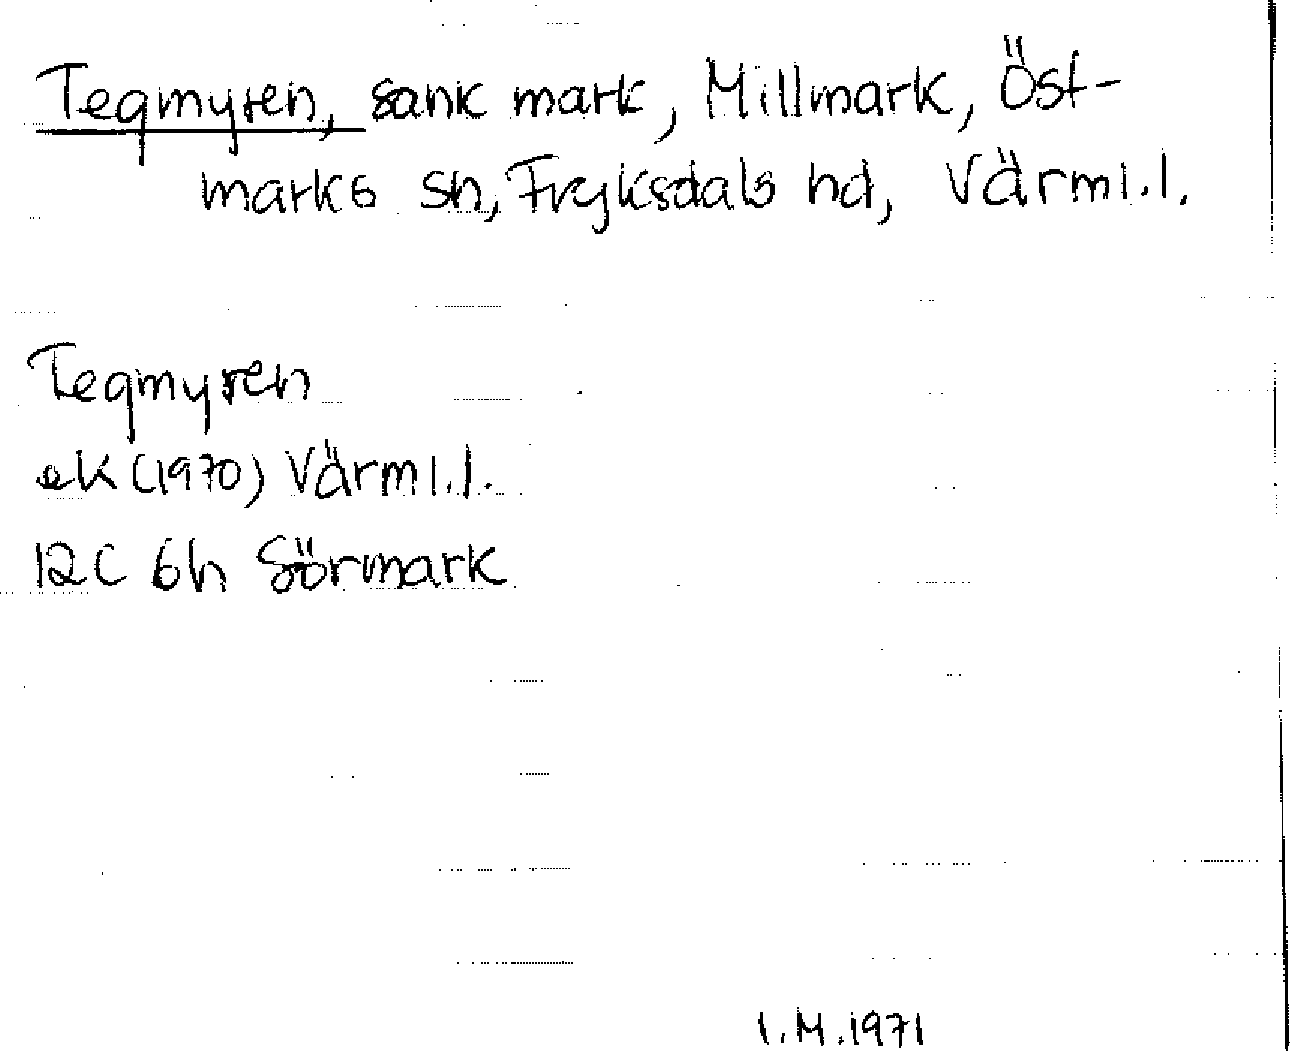 Tegmyren, sank mark, Millmark, Öst-
marks sn, Fryksdals hd, Värml.l.
Tegmyren
ek (1970) Värml.l.
12C 6h Sörmark
I.M.1971